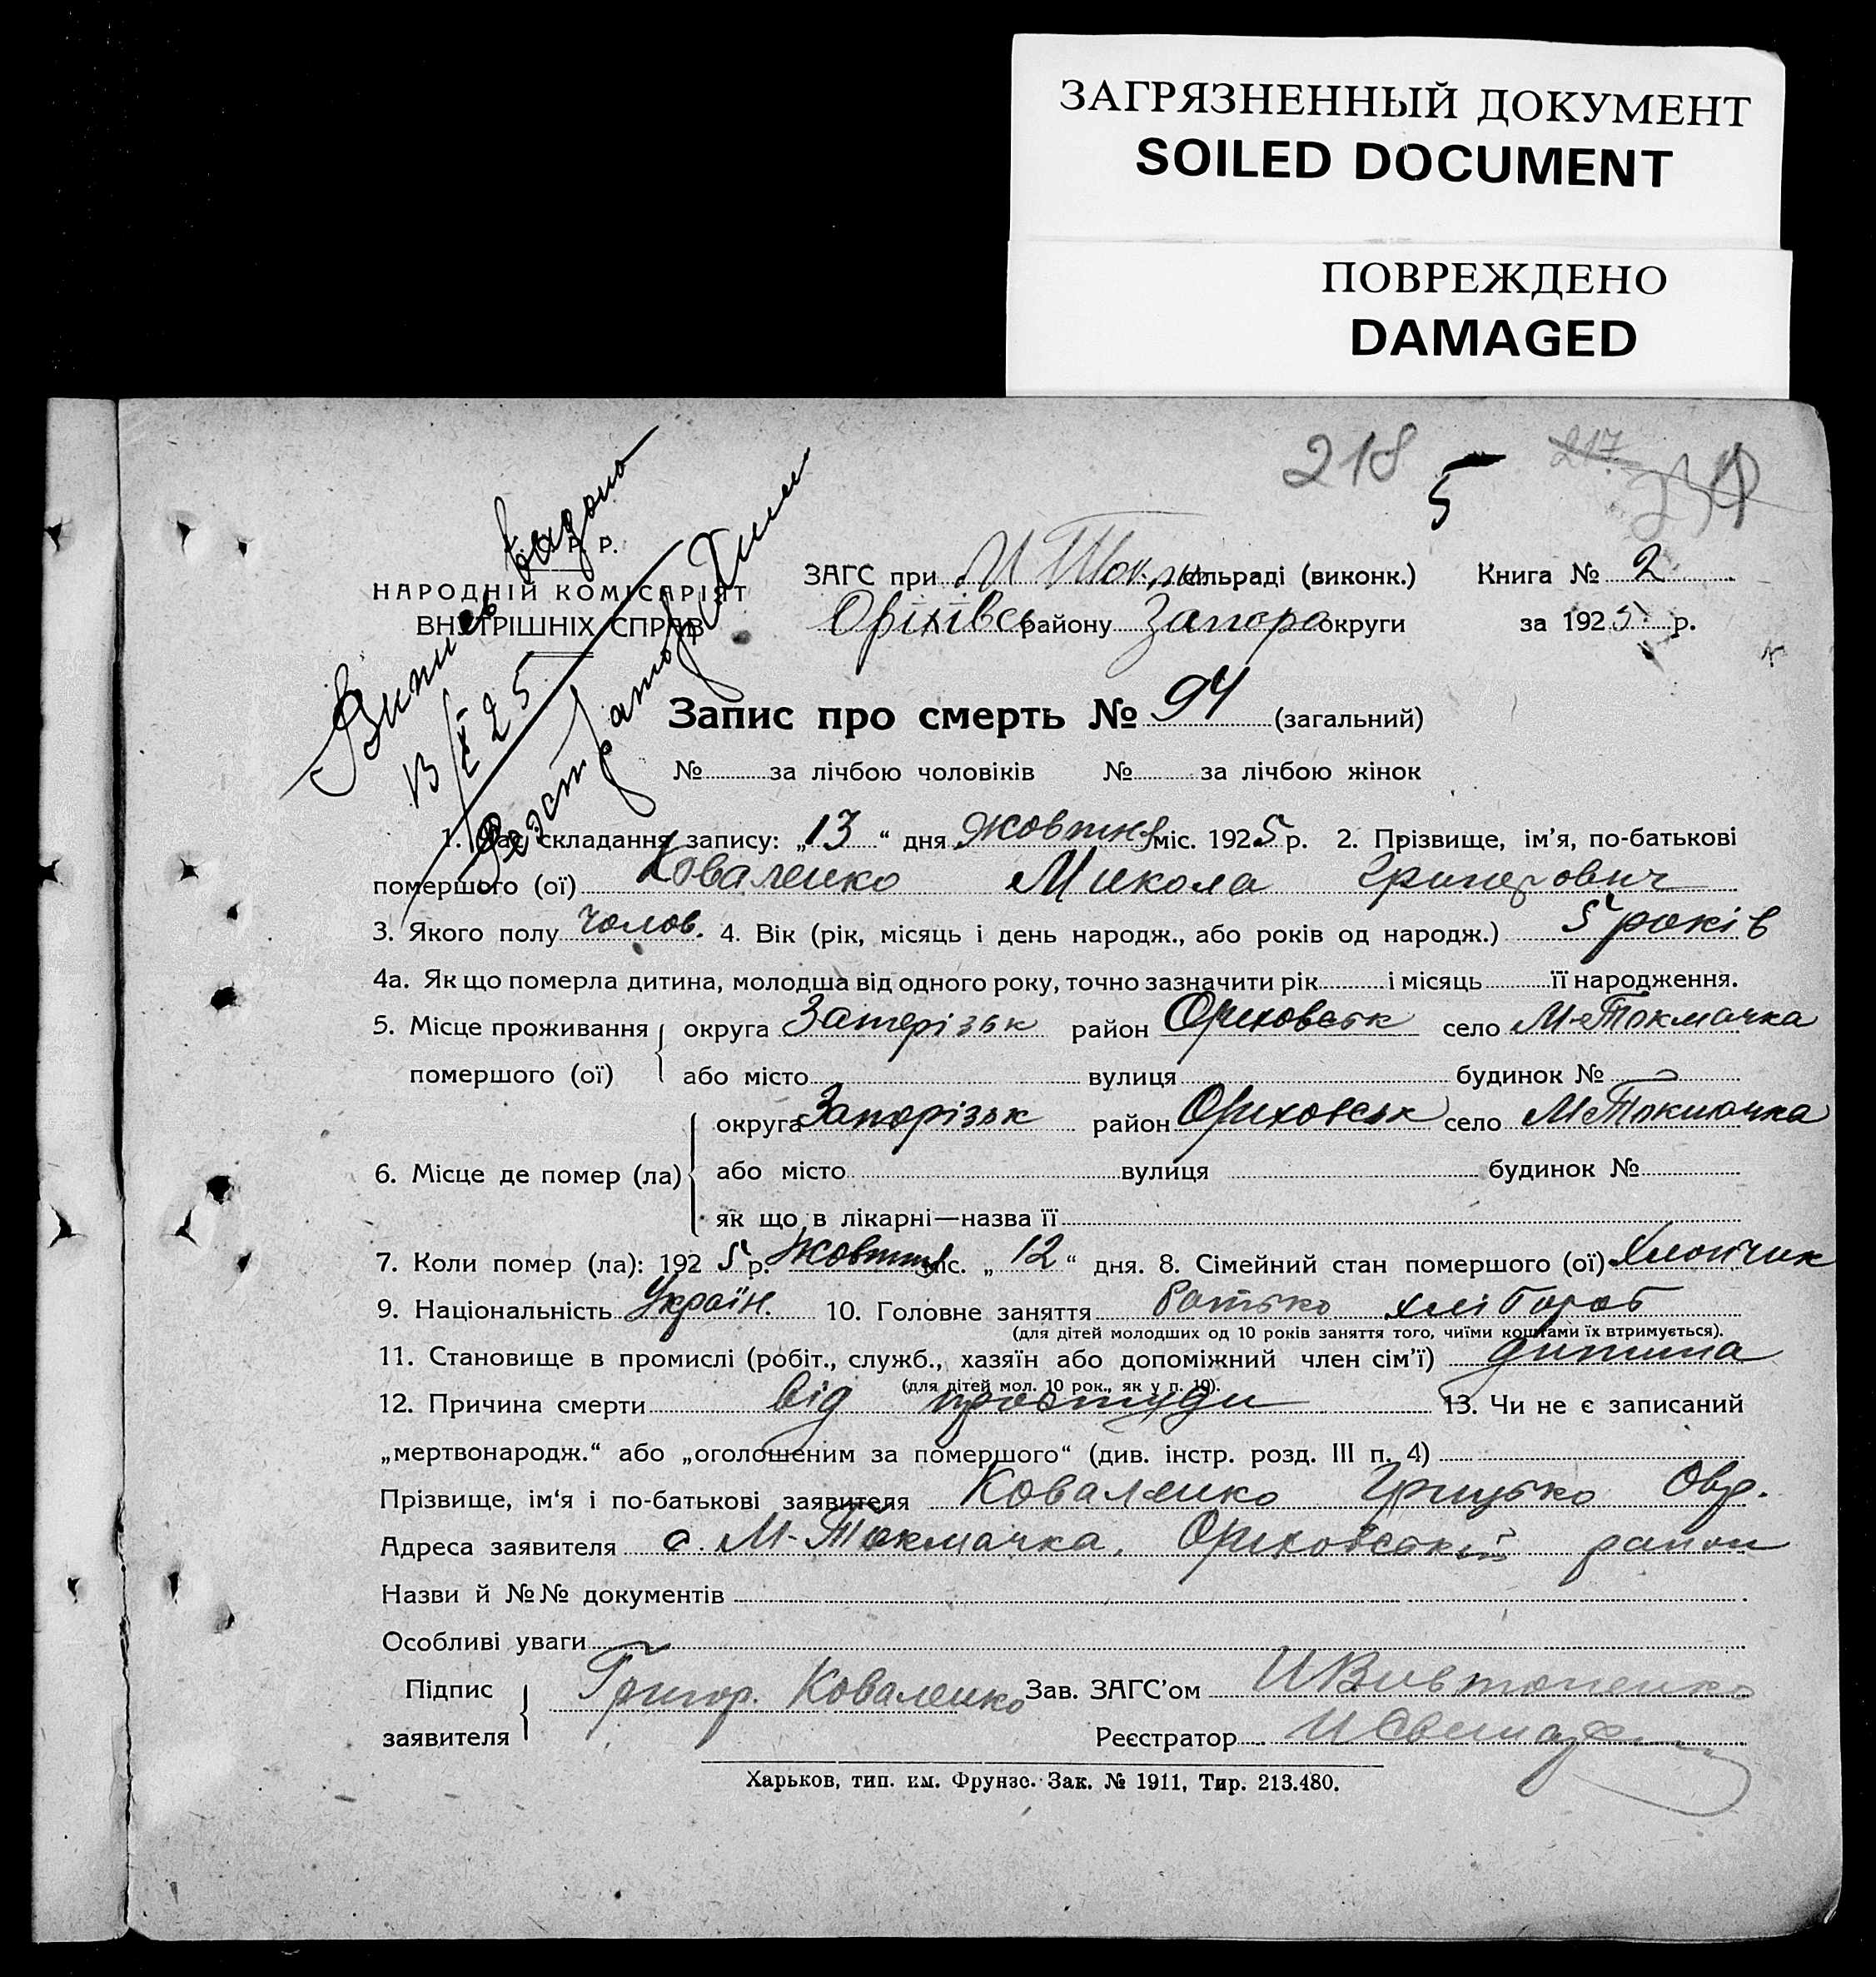 ЗАГРЯЗНЕННЫЙ ДОКУМЕНТ
SOILED DOCUMENT
ПОВРЕЖДЕНО
DAMAGED
218 5 217
Р. Р.
НАРОДНІЙ КОМІСАРІЯТ
ВНУТРІШНІХ СПРАВ
Випись видано
13/X 25
ЗАГС при МТок сільраді (виконк.) Книга № 2
Оріхівсь району Запоро округи за 1925 р.
Запис про смерть № 94 (загальний)
№ за лічбою чоловіків № за лічбою жінок
1. Час складання запису: „13“ дня жовтня міс. 1925 р. 2. Прізвище, ім’я, по-батькові
помершого (ої) Коваленко Микола Григорович
3. Якого полу чолов. 4. Вік (рік, місяць і день народж., або років од народж.) 5 років
4а. Як що померла дитина, молодша від одного року, точно зазначити рік і місяць її народження.
5. Місце проживання округа Запорізьк район Ориховськ село М-Токмачка
помершого (ої) або місто вулиця будинок №
округа Запорізьк район Ориховськ село М-Токмачка
6. Місце де помер (ла) або місто вулиця будинок №
як що в лікарні—назва її
7. Коли помер (ла): 1925 р. жовтня міс. „12“ дня. 8. Сімейний стан помершого (ої) хлопчик
9. Національність Україн. 10. Головне заняття батько хлібороб
(для дітей молодших од 10 років заняття того, чиїми коштами їх втримується).
11. Становище в промислі (робіт., служб., хазяїн або допоміжний член сім’ї) дитина
(для дітей мол. 10 рок., як у п. 10).
12. Причина смерти від простуди 13. Чи не є записаний
„мертвонародж.“ або „оголошеним за помершого“ (див. інстр. розд. III п. 4)
Прізвище, ім‘я і по-батькові заявителя Коваленко Грицько Овд.
Адреса заявителя с. М-Токмачка, Ориховський район
Назви й №№ документів
Особливі уваги
Підпис Григор. Коваленко Зав. ЗАГС’ом
заявителя Реєстратор
Харьков, тип. им. Фрунзе. Зак. № 1911, Тир. 213.480.